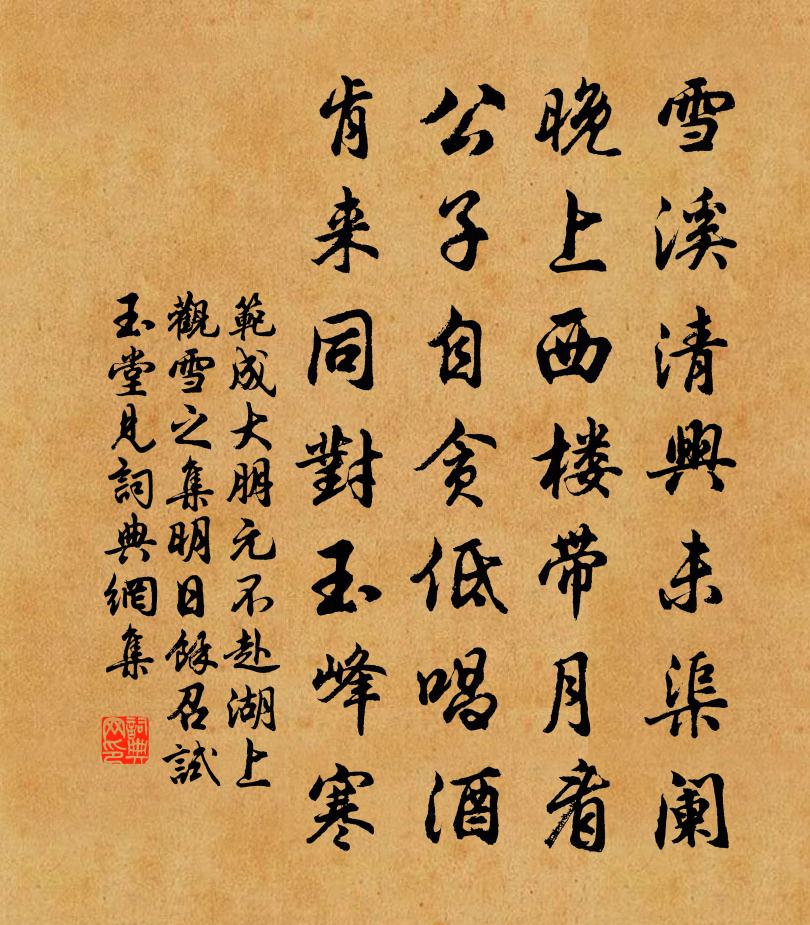 雪溪清興未渠阑
晚上西楼带月看
公子自贪低唱酒
肯来同對玉峰寒
範成大朋元不赴湖上
觀雪之集明日餘召試
玉堂見詞典網集
詞典
网印